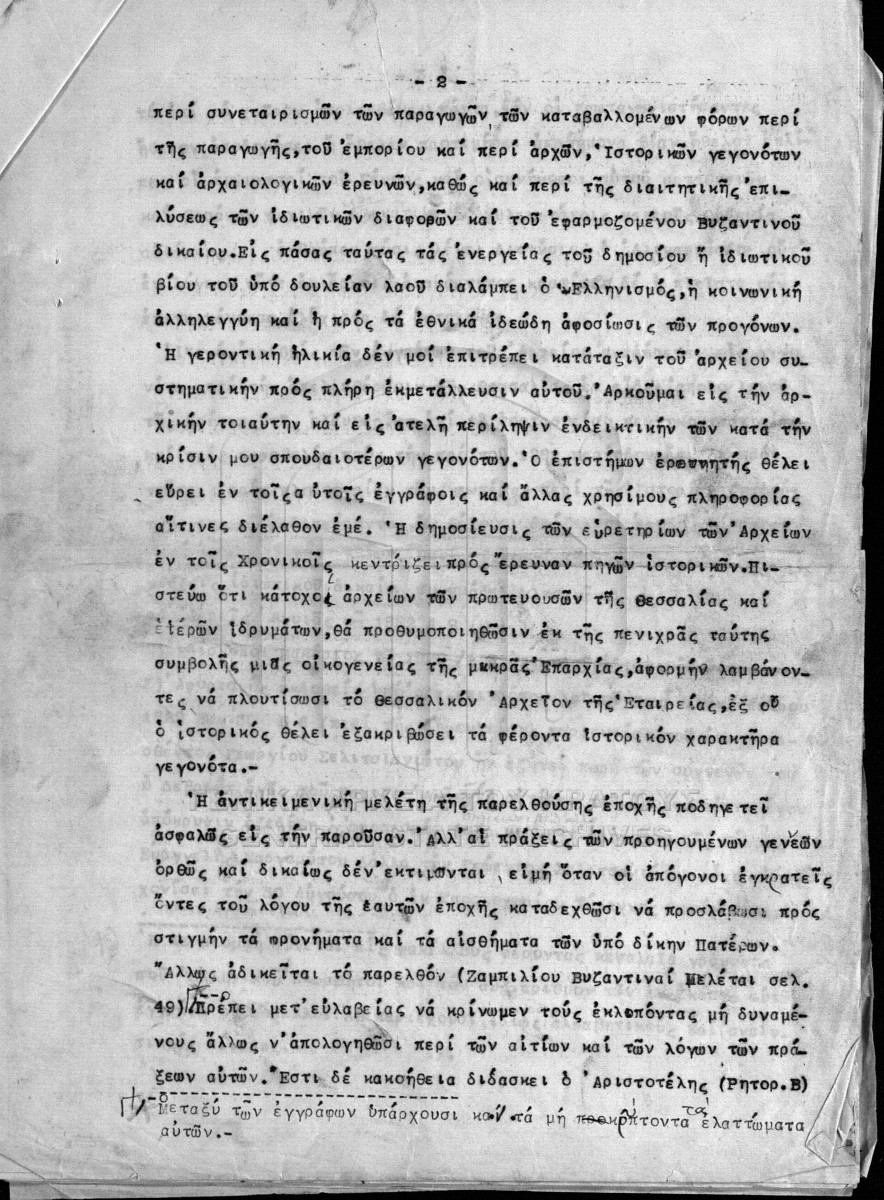 - 2 -
περί συνεταιρισμῶν τῶν παραγωγῶν τῶν καταβαλλομένων φόρων περί
τῆς παραγωγῆς, τοῦ ἐμπορίου καί περί ἀρχῶν, Ἱστορικῶν γεγονότων
καί ἀρχαιολογικῶν ἐρευνῶν, καθώς καί περί τῆς διαιτητικῆς ἐπι-
λύσεως τῶν ἰδιωτικῶν διαφορῶν καί τοῦ ἐφαρμοζομένου Βυζαντινοῦ
δικαίου. Εἰς πάσας ταύτας τάς ἐνεργείας τοῦ δημοσίου ἤ ἰδιωτικοῦ
βίου τοῦ ὑπό δουλείαν λαοῦ διαλάμπει ὁ Ἑλληνισμός, ἡ κοινωνική
ἀλληλεγγύη καί ἡ πρός τά ἐθνικά ἰδεώδη ἀφοσίωσις τῶν προγόνων.
Ἡ γεροντική ἡλικία δέν μοί ἐπιτρέπει κατάταξιν τοῦ ἀρχείου συ-
στηματικήν πρός πλήρη ἐκμετάλλευσιν αὐτοῦ. Ἀρκοῦμαι εἰς τήν ἀρ-
χικήν τοιαύτην καί εἰς ἀτελῆ περίληψιν ἐνδεικτικήν τῶν κατά τήν
κρίσιν μου σπουδαιοτέρων γεγονότων. Ὁ ἐπιστήμων ἐρευνητής θέλει
εὕρει ἐν τοῖςα ὐτοῖς ἐγγράφοις καί ἄλλας χρησίμους πληροφορίας
αἵτινες διέλαθον ἐμέ. Ἡ δημοσίευσις τῶν εὑρετηρίων τῶν Ἀρχείων
ἐν τοῖς Χρονικοῖς κεντρίζει πρός ἔρευναν πηγῶν ἱστορικῶν. Πι-
στεύω ὅτι κάτοχοι ἀρχείων τῶν πρωτευουσῶν τῆς Θεσσαλίας καί
ἑτέρῶν ἱδρυμάτων, θά προθυμοποιηθῶσιν ἐκ τῆς πενιχρᾶς ταύτης
συμβολῆς μιᾶς οἰκογενείας τῆς μικρᾶς Ἐπαρχίας, ἀφορμήν λαμβάνον-
τες νά πλουτίσωσι τό Θεσσαλικόν Ἀρχεῖον τῆς Ἑταιρείας, ἐξ οὗ
ὁ ἱστορικός θέλει ἐξακριβώσει τά φέροντα ἱστορικόν χαρακτῆρα
γεγονότα.-
Ἡ ἀντικειμενική μελέτη τῆς παρελθούσης ἐποχῆς ποδηγετεῖ
ἀσφαλῶς εἰς τήν παροῦσαν. Ἀλλ' αἱ πράξεις τῶν προηγουμένων γενεῶν
ὀρθῶς καί δικαίως δέν ἐκτιμῶνται, εἰμή ὅταν οἱ ἀπόγονοι ἐγκρατεῖς
ὄντες τοῦ λόγου τῆς ἑαυτῶν ἐποχῆς καταδεχθῶσι νά προσλάβωσι πρός
στιγμήν τά φρονήματα καί τά αἰσθήματα τῶν ὑπό δίκην Πατέρων.
Ἄλλως ἀδικεῖται τό παρελθόν (Ζαμπιλίου Βυζαντιναί Μελέται σελ.
49) Πρέπει μετ' εὐλαβείας νά κρίνωμεν τούς ἐκλιπόντας μή δυναμέ-
νους ἄλλως ν' ἀπολογηθῶσι περί τῶν αἰτίων καί τῶν λόγων τῶν πρά-
ξεων αὐτῶν. Ἔστι δέ κακοήθεια διδάσκει ὁ Ἀριστοτέλης (Ρητορ.Β)
Μεταξύ τῶν ἐγγράφων ὑπάρχουσι καί τά μή κρύπτοντα τά ἐλαττώματα
αὐτῶν.-